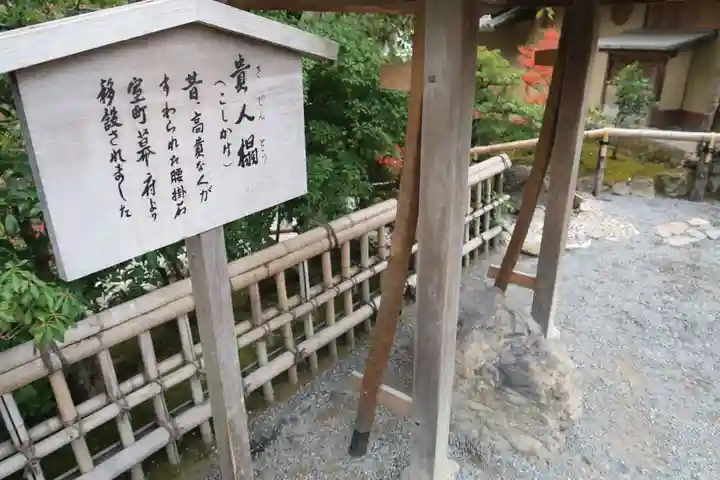 貴人榻
きにんとう
（こしかけ）
昔、高貴な人が
すわられた腰掛石
室町幕府より
移設されました